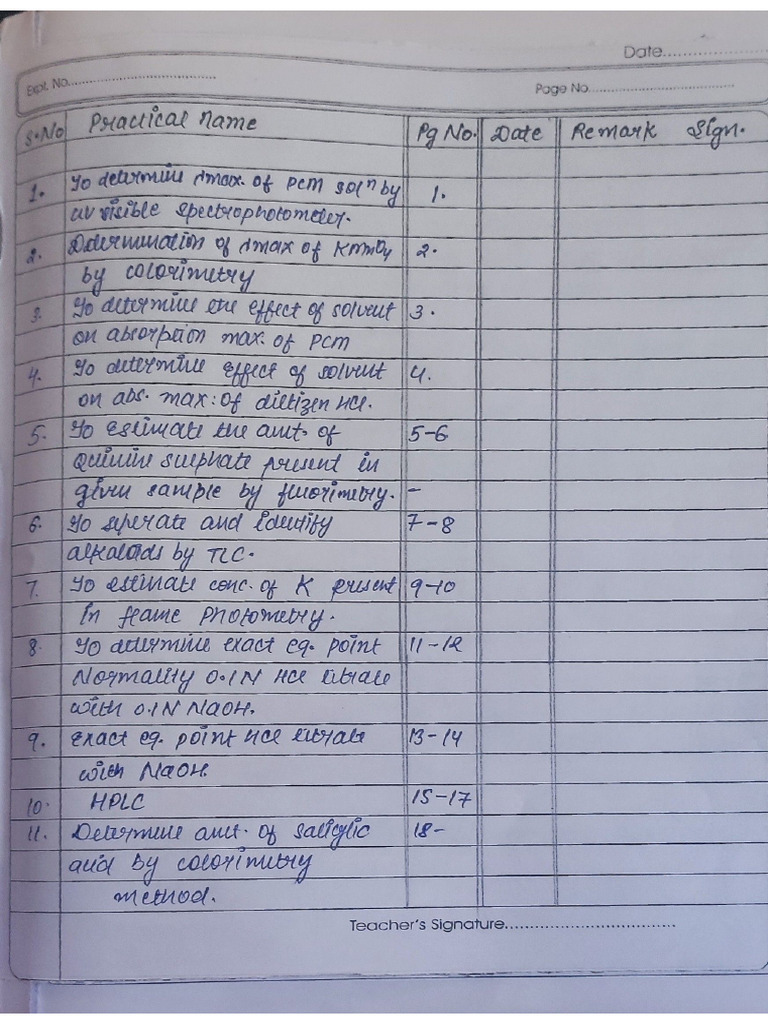 Date..................
Expt. No.......................................
Page No.......................................
S.No Practical Name Pg No. Date Remark Sign.
1. To determine λmax. of PCM solⁿ by 1.
uv visible spectrophotometer.
2. Determination of λmax of KMnO4 2.
by colorimetry
3. To determine the effect of solvent 3.
on absorption max. of PCM
4. To determine effect of solvent 4.
on abs. max: of dietizen HCl.
5. To Estimate the amt. of 5-6
Quinine sulphate present in
given sample by fluorimetry. -
6. To seperate and identify 7-8
alkaloids by TLC.
7. To estimate conc. of K present 9-10
In flame photometry.
8. To determine exact eq. point 11-12
Normality 0.1N HCl titrate
with 0.1N NaOH.
9. Exact eq. point HCl titrate 13-14
with NaOH.
10. HPLC 15-17
11. Determine amt. of salicylic 18-
acid by colorimetry
method.
Teacher's Signature....................................